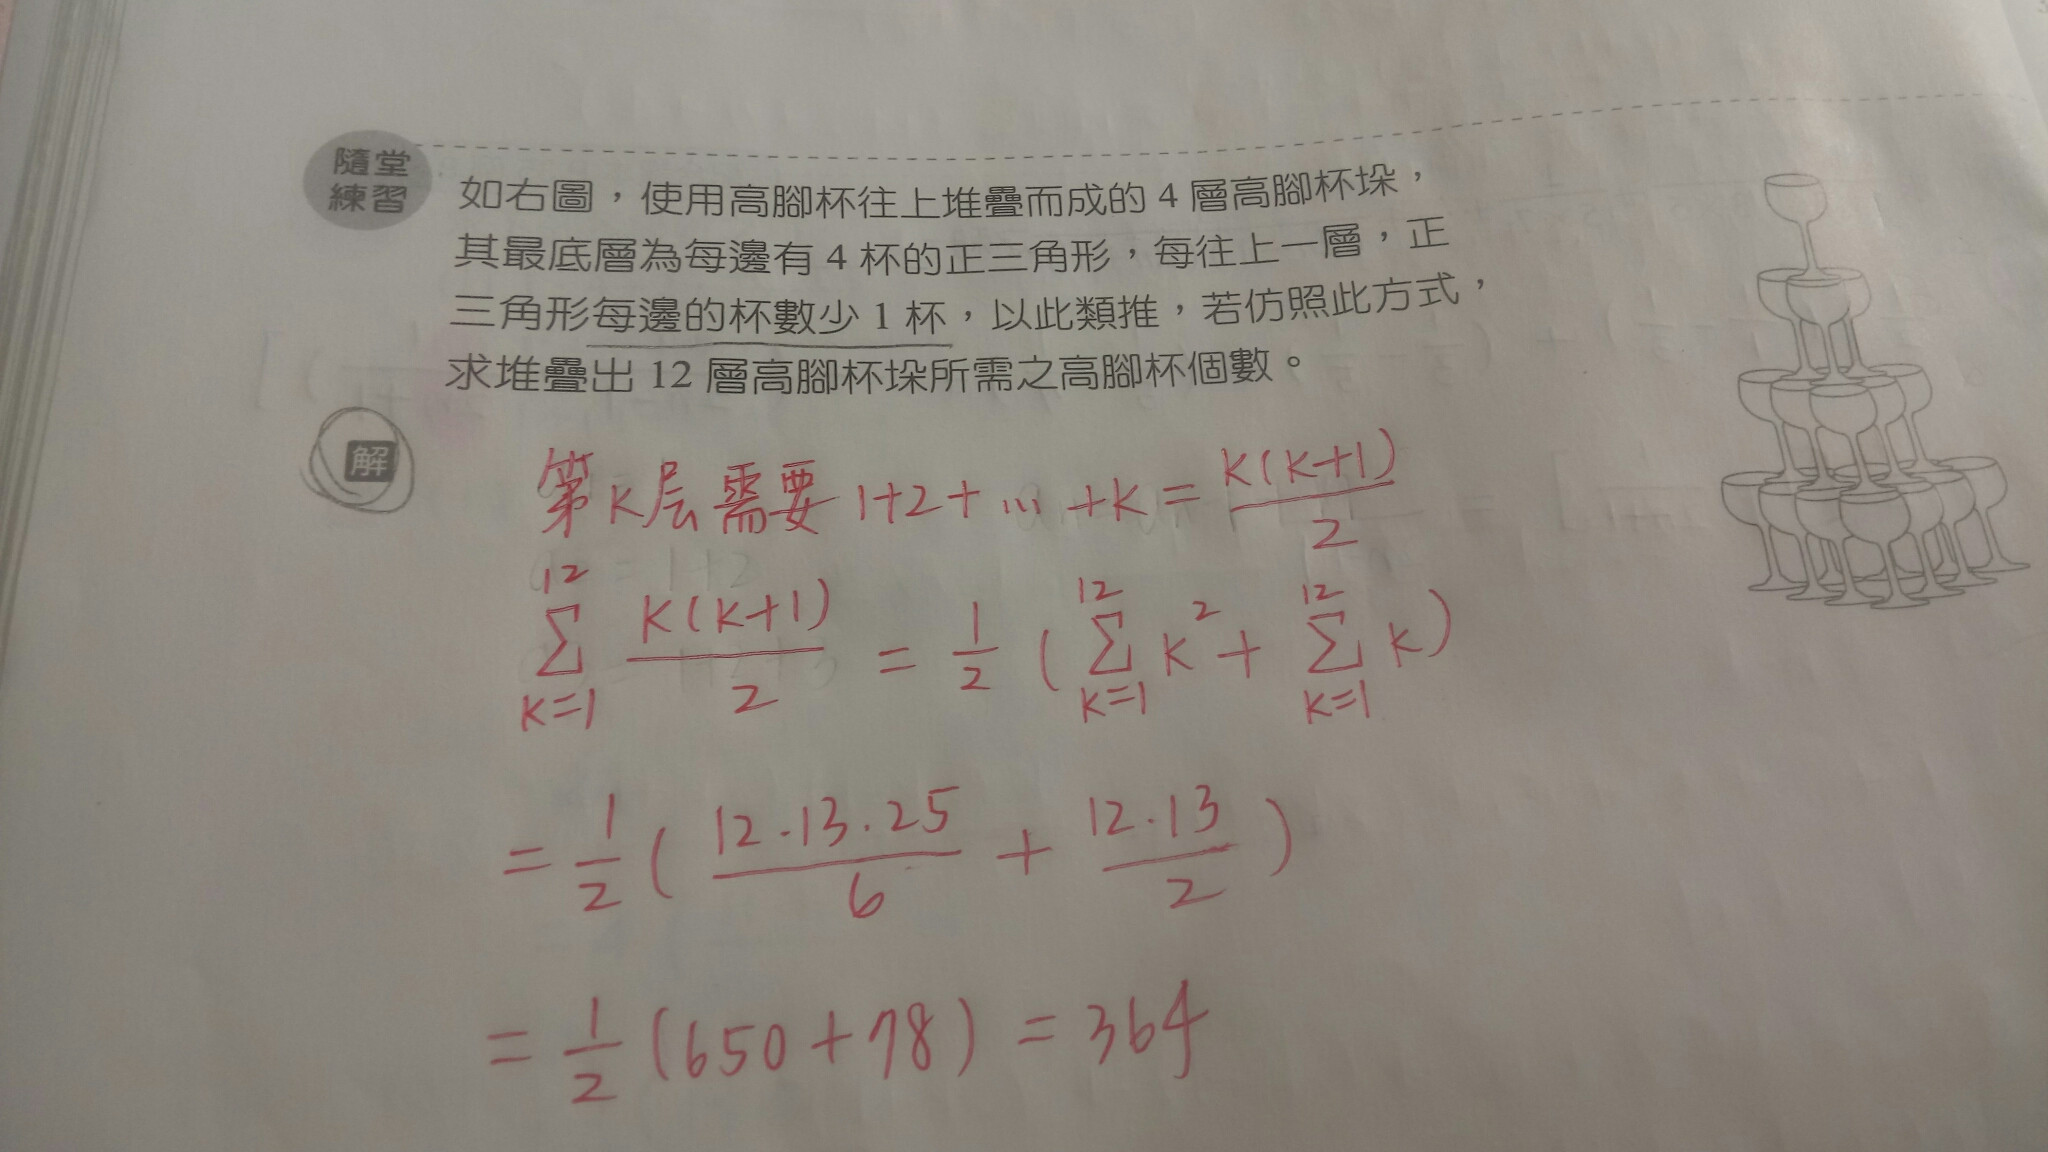 隨堂
練習
如右圖，使用高腳杯往上堆疊而成的 4 層高腳杯垛，
其最底層為每邊有 4 杯的正三角形，每往上一層，正
三角形每邊的杯數少 1 杯，以此類推，若仿照此方式，
求堆疊出 12 層高腳杯垛所需之高腳杯個數。
解
第 K 层需要 1+2+…+K = K(K+1)/2
∑_{K=1}^{12} K(K+1)/2 = 1/2 (∑_{K=1}^{12} K² + ∑_{K=1}^{12} K)
= 1/2 (12·13·25/6 + 12·13/2)
= 1/2 (650+78) = 364